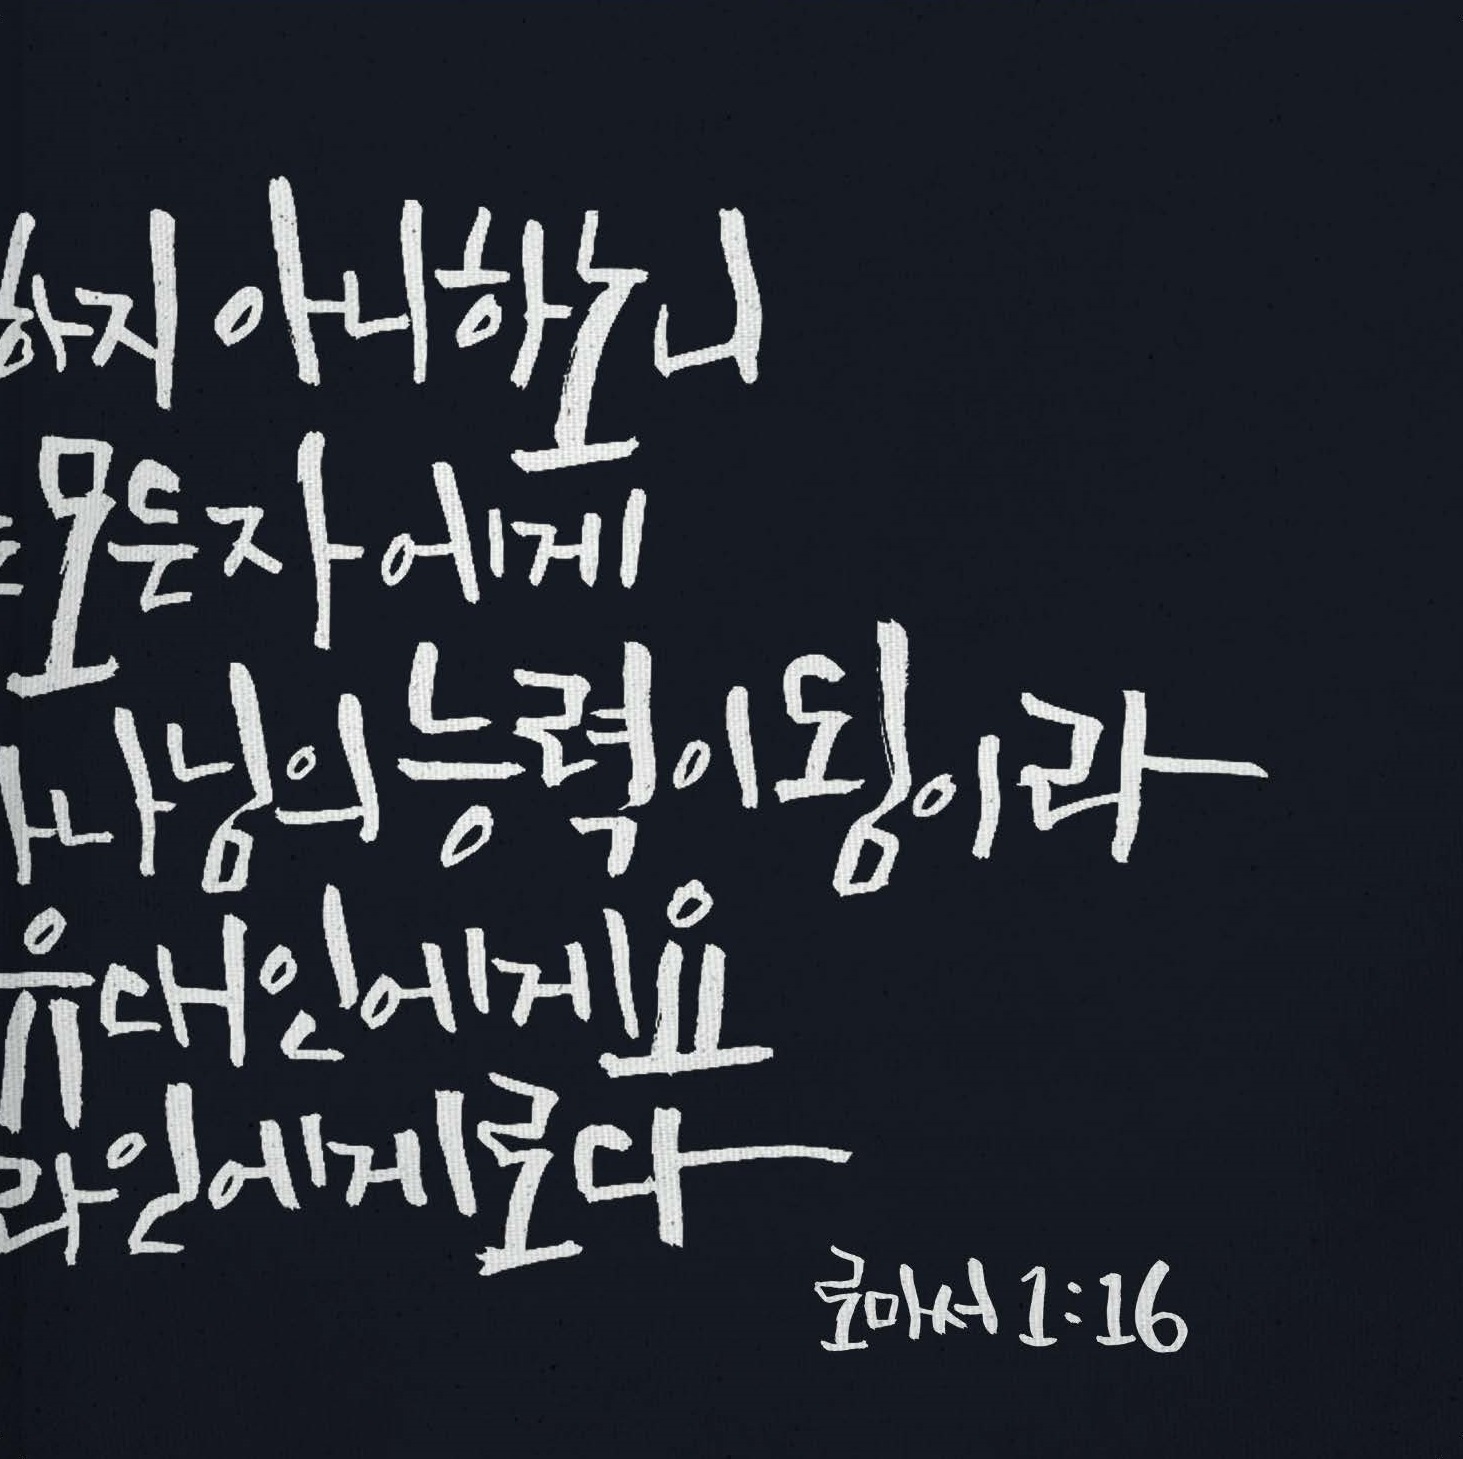 하지 아니하노니
모든 자에게
하나님의 능력이 됨이라
유대인에게요
라인에게로다
로마서 1:16